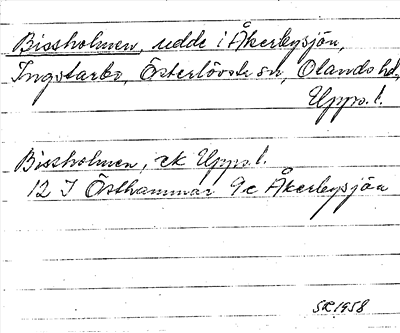 Bissholmen, udde i Åkerbysjön,
Ingstarbo, Österlövsta sn, Olands hd,
Upps. l.
Bissholmen, ek Upps. l.
12 I Östhammar 9c Åkerbysjön
SR 1958